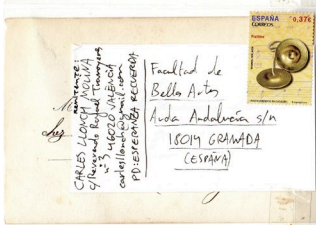 Remitente:
CARLES LLONCH MOLINA
C/Reverendo Rafael Tramoyeres
nº3 46020 VALENCIA
carlesllonch@gmail.com
PD: ESPERANZA RECUERDA
Facultad de
Bellas Artes
Avda Andalucía s/n
18014 GRANADA
(ESPAÑA)
ESPAÑA
0,37€
CORREOS